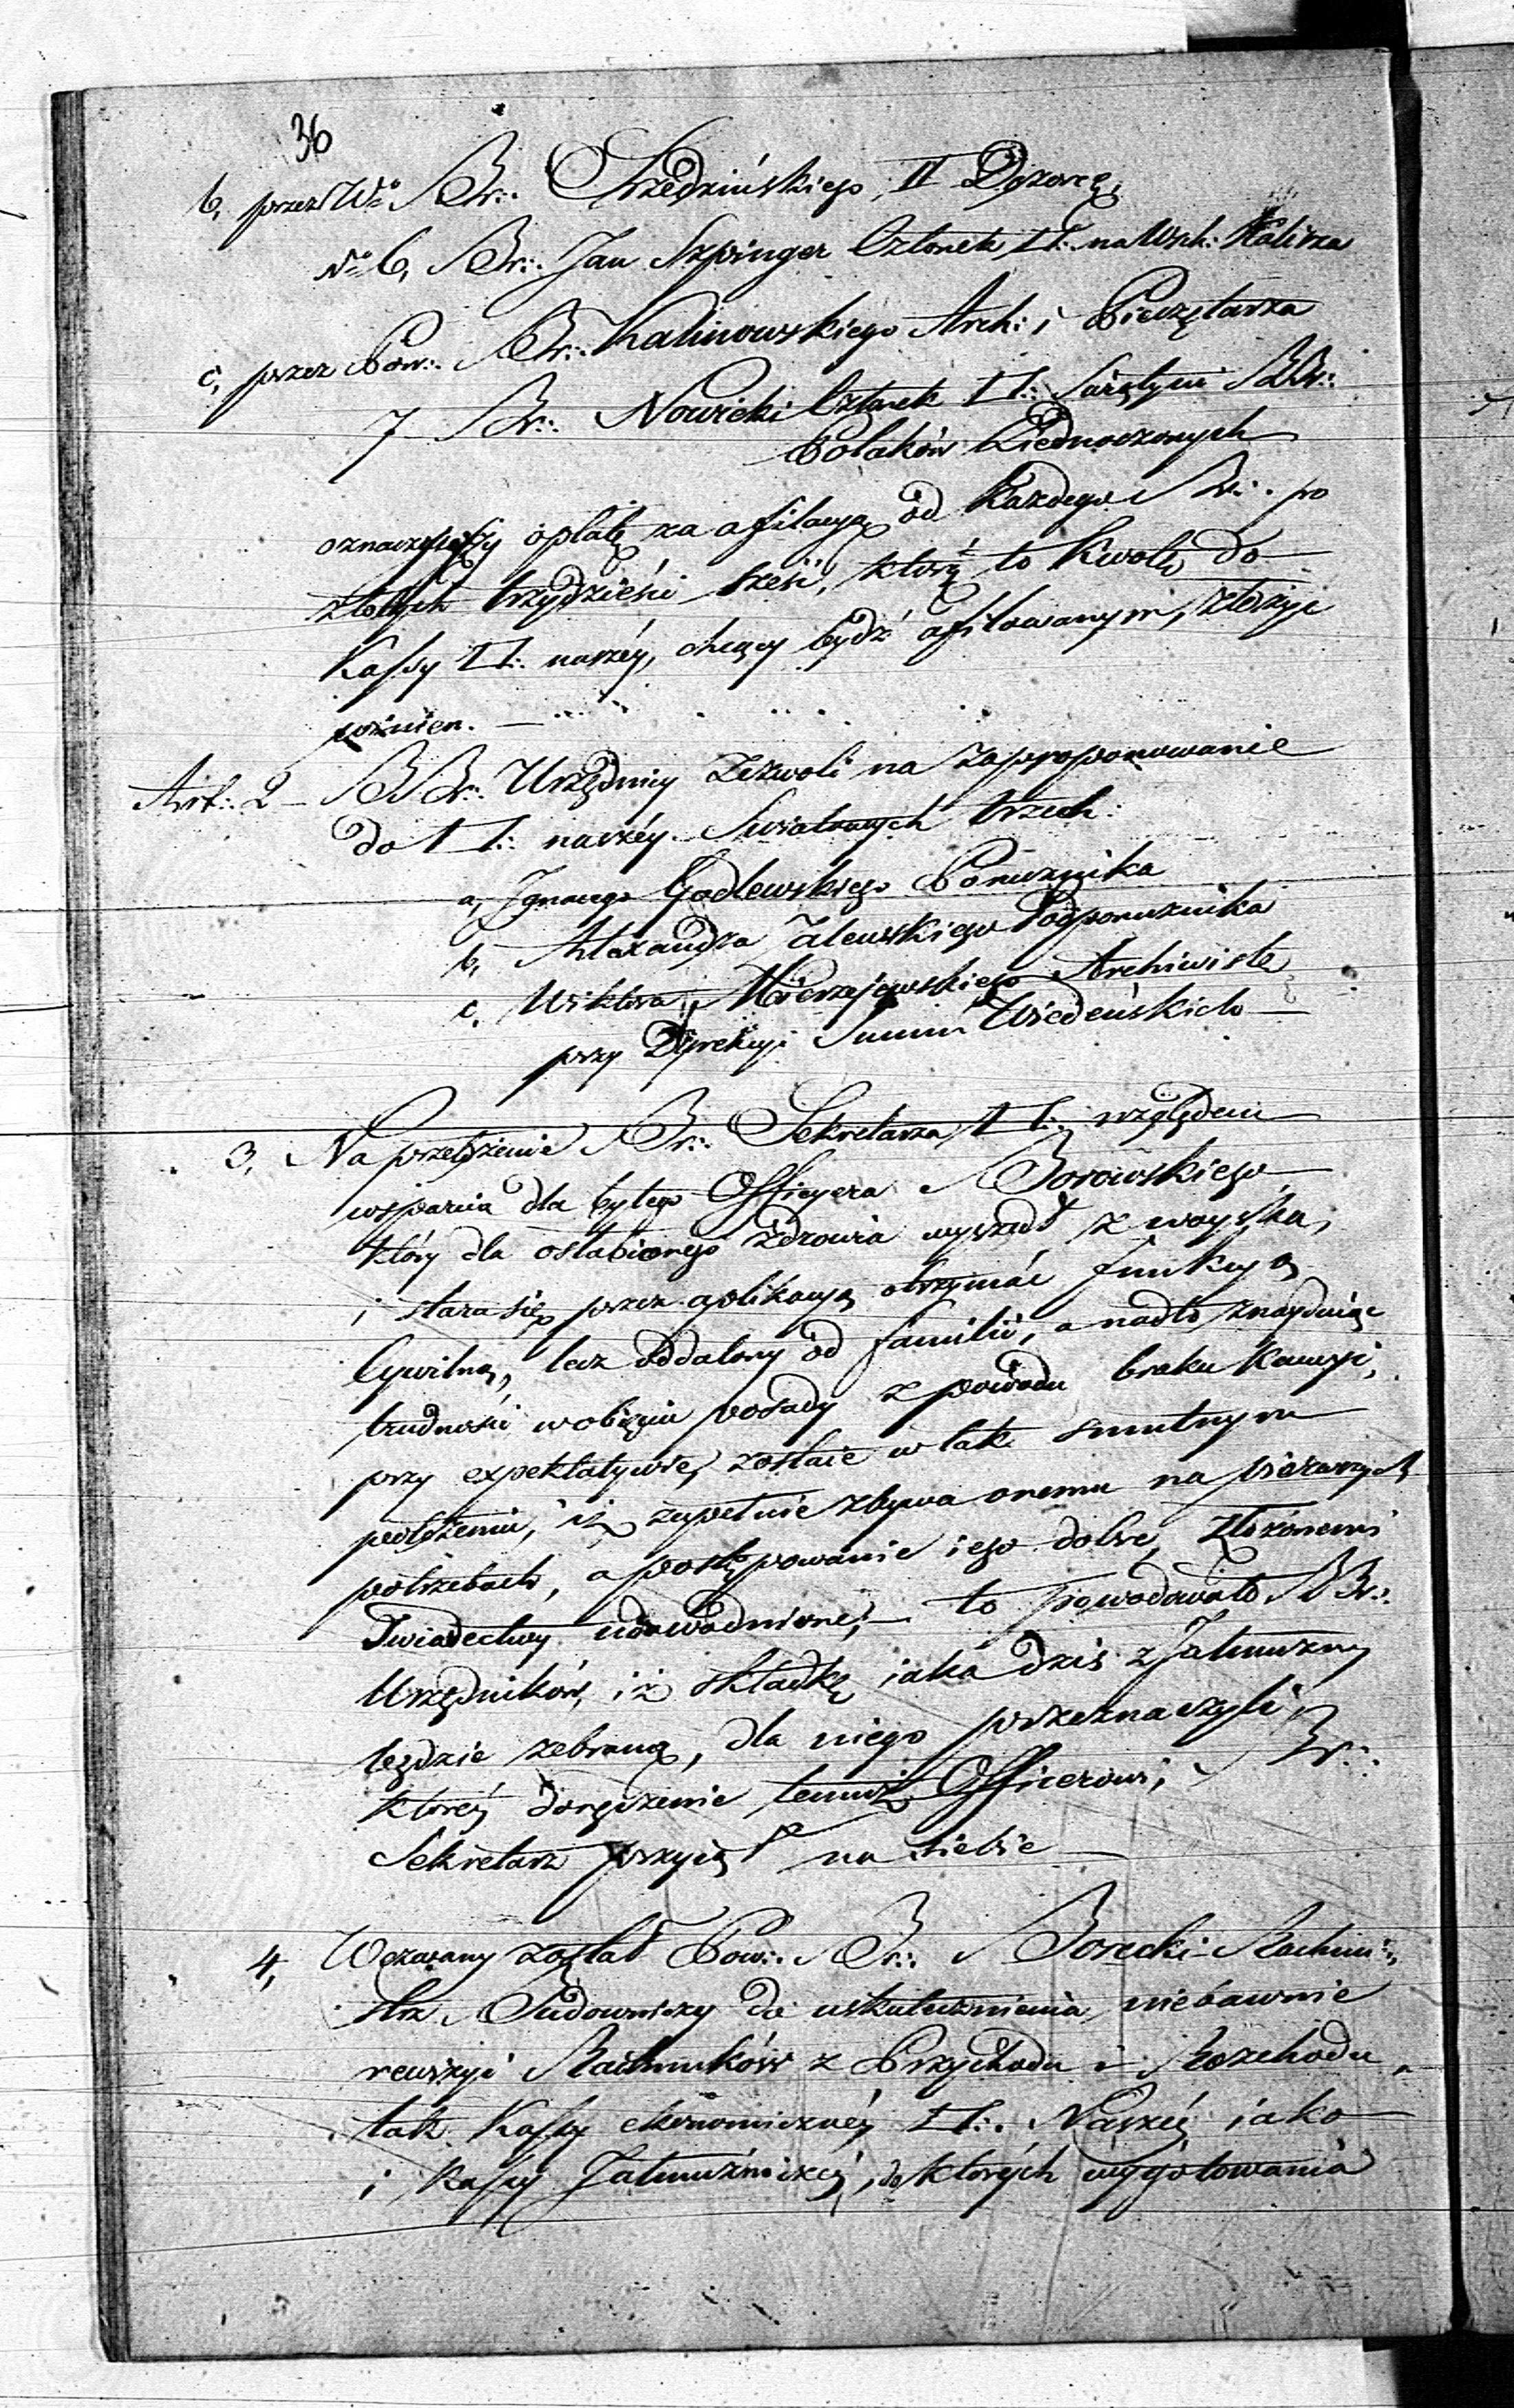 36
b, przez Wo Br∴ Średzińskiego, II Dozorcę,
No 6, Br∴ Jan Szpinger Członek □∴ na Wsch: Kalisza
c, przez Pow∴ Br∴ Kalinowskiego Arch: i Pieczętarza
7 Br∴ Nowicki Członek □∴ Swiątyni BBr∴
Polaków Ziednoczonych
oznaczywszy opłatę za afilacyą od każdego Br∴ po
złotych trzydzieści sześć, którą to kwotę do
Kassy □∴ naszéy, chcący bydź afilowanym, złożyć
powinien. —
Art: 2 — BBr∴ Urzędnicy zezwoli na zaproponowanie
do □∴ naszéy Swiatowych trzech:
a, Ignacego Godlewskiego Porucznika
b, Alexandra Zalewskiego Podporucznika
c. Wiktora Mierzejewskiego Archiwistę
przy Dyrekcyi Summ Wiedeńskich —
3, Na przełożenie Br∴ Sekretarza □∴ względem
wsparcia dla byłego Officyera Borowskiego
który dla osłabionego zdrowia wyszedł z woyska,
i stara się przez aplikacyą otrzymać funkcyą
Cywilną, lecz oddalony od familii, a nadto znayduiąc
trudności w obięciu posady z powodu braku kaucyi,
przy expektatywie, zostaie w tak smutnym
położeniu, iż zupełnie zbywa onemu na pierwszych
potrzebach, a postępowanie iego dobre, złożonemi
Swiadectwy udowodnione; — to powodowało BBr∴
Urzędników, iż składkę iaka dziś z Jałmużny
będzie zebraną, dla niego przeznaczyli,
któréy doręczenie temuż Officerowi, Br∴
Sekretarz przyiął na siebie —
4, Wezwany został Pow∴ Br∴ Borecki Rachmi∴
strz Budowniczy do uskutecznienia niebawnie
rewizyi Rachunków z Przychodu i Rozchodu
tak Kassy ekonomicznéy □∴ Naszéy iako
i Kassy Jałmużniczéy, do których wygotowania